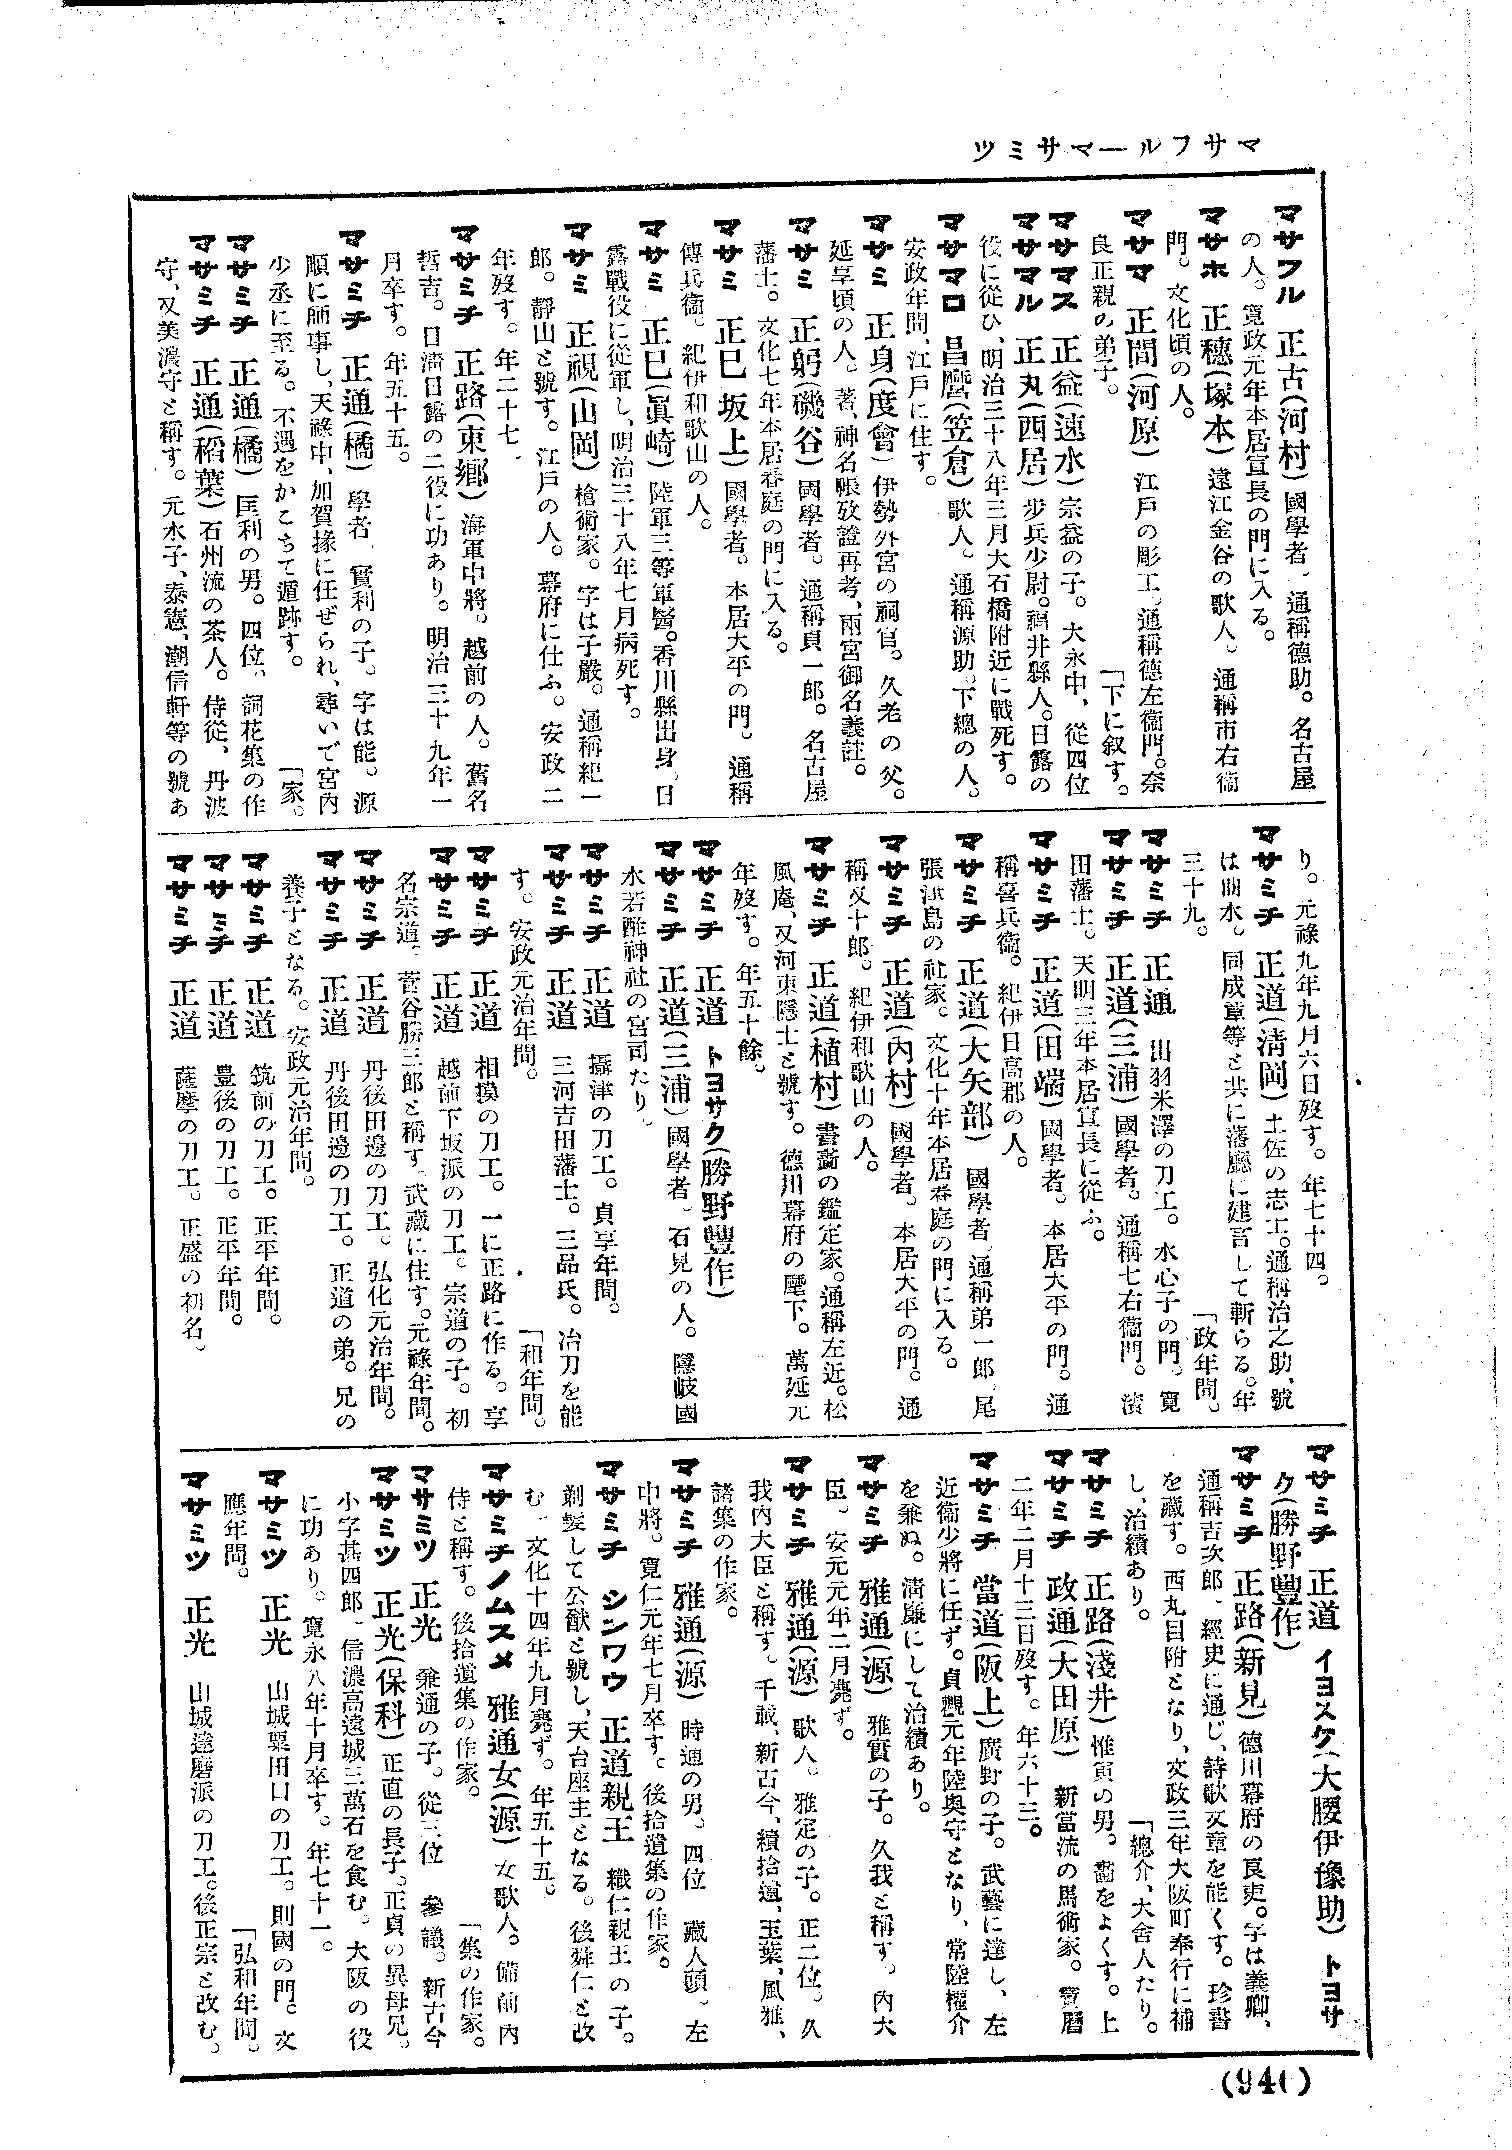 マサフル―マサミツ
マサフル 正古(河村)國學者、通稱德助。名古屋
の人。寬政元年本居宣長の門に入る。
マサホ 正穗(塚本)遠江金谷の歌人。通稱市右衞
門。文化頃の人。
マサマ 正間(河原)江戶の彫工。通稱德左衞門。奈
良正親の弟子。「下に叙す。
マサマス 正益(速水)宗益の子。大永中、從四位
マサマル 正丸(西居)步兵少尉。福井縣人。日露の
役に從ひ、明治三十八年三月大石橋附近に戰死す。
マサマロ 昌麿(笠倉)歌人。通稱源助。下總の人。
安政年間、江戶に住す。
マサミ 正身(度會)伊勢外宮の祠官。久老の父。
延享頃の人。著、神名帳攷證再考、兩宮御名義註。
マサミ 正躬(磯谷)國學者。通稱貞一郎。名古屋
藩士。文化七年本居春庭の門に入る。
マサミ 正巳(坂上)國學者。本居大平の門。通稱
傳兵衞。紀伊和歌山の人。
マサミ 正巳(眞崎)陸軍三等軍醫。香川縣出身。日
露戰役に從軍し、明治三十八年七月病死す。
マサミ 正視(山岡)槍術家。字は子嚴。通稱紀一
郎。靜山と號す。江戶の人。幕府に仕ふ。安政二
年歿す。年二十七、
マサミチ 正路(東鄕)海軍中將。越前の人。舊名
哲吉。日淸日露の二役に功あり。明治三十九年一
月卒す。年五十五。
マサミチ 正通(橘)學者、實利の子。字は能。源
順に師事し、天祿中、加賀掾に任ぜられ、尋いで宮內
少丞に至る。不遇をかこちて遁跡す。「家。
マサミチ 正通(橘)匡利の男。四位、詞花集の作
マサミチ 正通(稻葉)石州流の茶人。侍從、丹波
守、又美濃守と稱す。元水子、泰憲、潮信軒等の號あ
り。元祿九年九月六日歿す。年七十四。
マサミチ 正道(淸岡)土佐の志士。通稱治之助、號
は南水。同成章等と共に藩廳に建言して斬らる。年
三十九。「政年間。
マサミチ 正通 出羽米澤の刀工。水心子の門。寬
マサミチ 正道(三浦)國學者。通稱七右衞門。濱
田藩士。天明三年本居宣長に從ふ。
マサミチ 正道(田端)國學者。本居大平の門。通
稱喜兵衞。紀伊日高郡の人。
マサミチ 正道(大矢部)國學者、通稱弟一郎、尾
張津島の社家。文化十年本居春庭の門に入る。
マサミチ 正道(內村)國學者。本居大平の門。通
稱友十郎。紀伊和歌山の人。
マサミチ 正道(植村)書畵の鑑定家。通稱左近。松
風庵、又河東隱士と號す。德川幕府の麾下。萬延元
年歿す。年五十餘。
マサミチ 正道 トヨサク(勝野豐作)
マサミチ 正道(三浦)國學者、石見の人。隱岐國
水若酢神社の宮司たり。
マサミチ 正道 攝津の刀工。貞享年間。
マサミチ 正道 三河吉田藩士。三品氏。冶刀を能
す。安政元治年間。「和年間。
マサミチ 正道 相摸の刀工。一に正路に作る。享
マサミチ 正道 越前下坂派の刀工。宗道の子。初
名宗道。菅谷勝三郎と稱す。武藏に住す。元祿年間。
マサミチ 正道 丹後田邊の刀工。弘化元治年間。
マサミチ 正道 丹後田邊の刀工。正道の弟。兄の
養子となる。安政元治年間。
マサミチ 正道 筑前の刀工。正平年間。
マサミチ 正道 豐後の刀工。正平年間。
マサミチ 正道 薩摩の刀工。正盛の初名。
マサミチ 正道 イヨスケ(大腰伊豫助) トヨサ
ク(勝野豐作)
マサミチ 正路(新見)德川幕府の良吏。字は義卿、
通稱吉次郎、經史に通じ、詩歌文章を能くす。珍書
を藏す。西丸目附となり、文政三年大阪町奉行に補
し、治績あり。「總介、大舍人たり。
マサミチ 正路(淺井)惟寅の男。畵をよくす。上
マサミチ 政通(大田原) 新當流の馬術家。寶曆
二年二月十三日歿す。年六十三。
マサミチ 當道(阪上)廣野の子。武藝に達し、左
近衞少將に任ず。貞觀元年陸奧守となり、常陸權介
を兼ぬ。淸廉にして治績あり。
マサミチ 雅通(源)雅實の子。久我と稱す。內大
臣、安元元年二月薨ず。
マサミチ 雅通(源)歌人。雅定の子。正二位。久
我內大臣と稱す。千載、新古今、續拾遺、玉葉、風雅、
諸集の作家。
マサミチ 雅通(源)時通の男。四位 藏人頭、左
中將。寬仁元年七月卒す。後拾遺集の作家。
マサミチ シンワウ 正道親王 織仁親王の子。
剃髮して公猷と號し、天台座主となる。後舜仁と改
む、文化十四年九月薨ず。年五十五。
マサミチノムスメ 雅通女(源)女歌人。備前內
侍と稱す。後拾遺集の作家。「集の作家。
マサミツ 正光 兼通の子。從三位 參議。新古今
マサミツ 正光(保科)正直の長子。正貞の異母兄。
小字甚四郎、信濃高遠城三萬石を食む。大阪の役
に功あり。寬永八年十月卒す。年七十一。
マサミツ 正光 山城粟田口の刀工。則國の門。文
應年間。「弘和年間。
マサミツ 正光 山城達磨派の刀工。後正宗と改む。